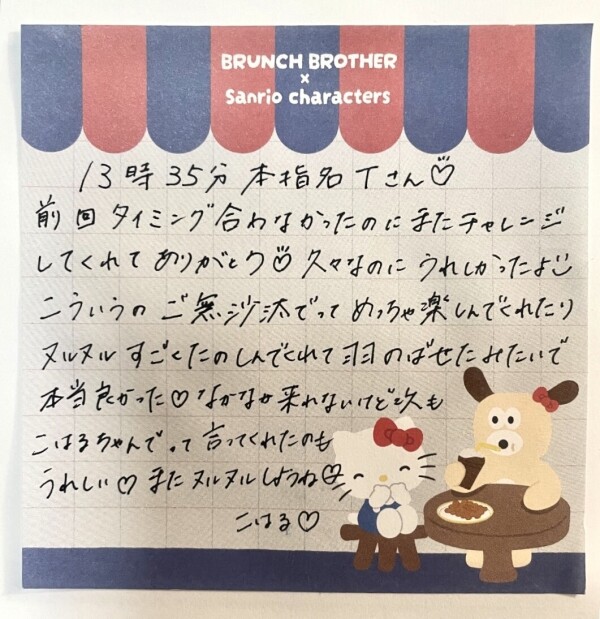 BRUNCH BROTHER
×
Sanrio characters
13時35分 本指名Tさん♡
前回タイミング合わなかったのにまたチャレンジ
してくれてありがとう♡久々なのにうれしかったよ
こういうのご無沙汰でってめっちゃ楽しんでくれたり
ヌルヌルすごくたのしんでくれて羽のばせたみたいで
本当良かった♡なかなか来れないけど次も
こはるちゃんでって言ってくれたのも
うれしい♡またヌルヌルしようね
こはる♡